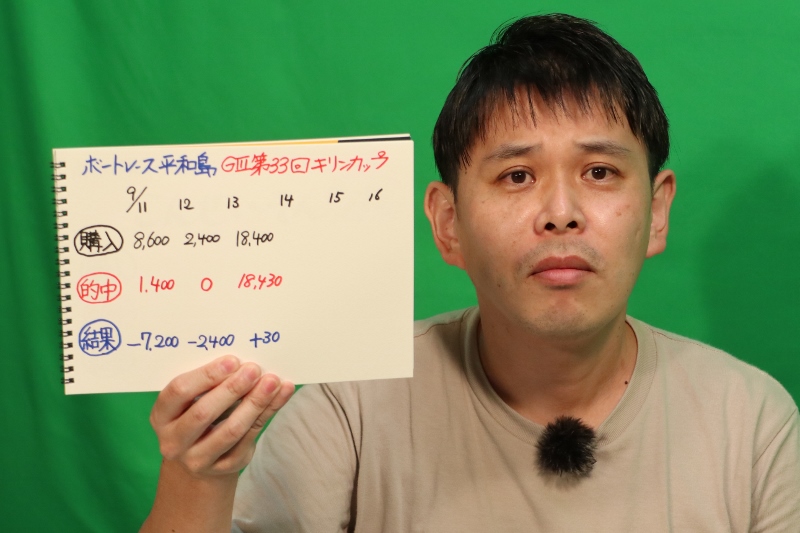 ボートレース平和島 GⅢ第33回キリンカップ
9/11 12 13 14 15 16
購入 8,600 2,400 18,400
的中 1.400 0 18,430
結果 -7.200 -2,400 +30